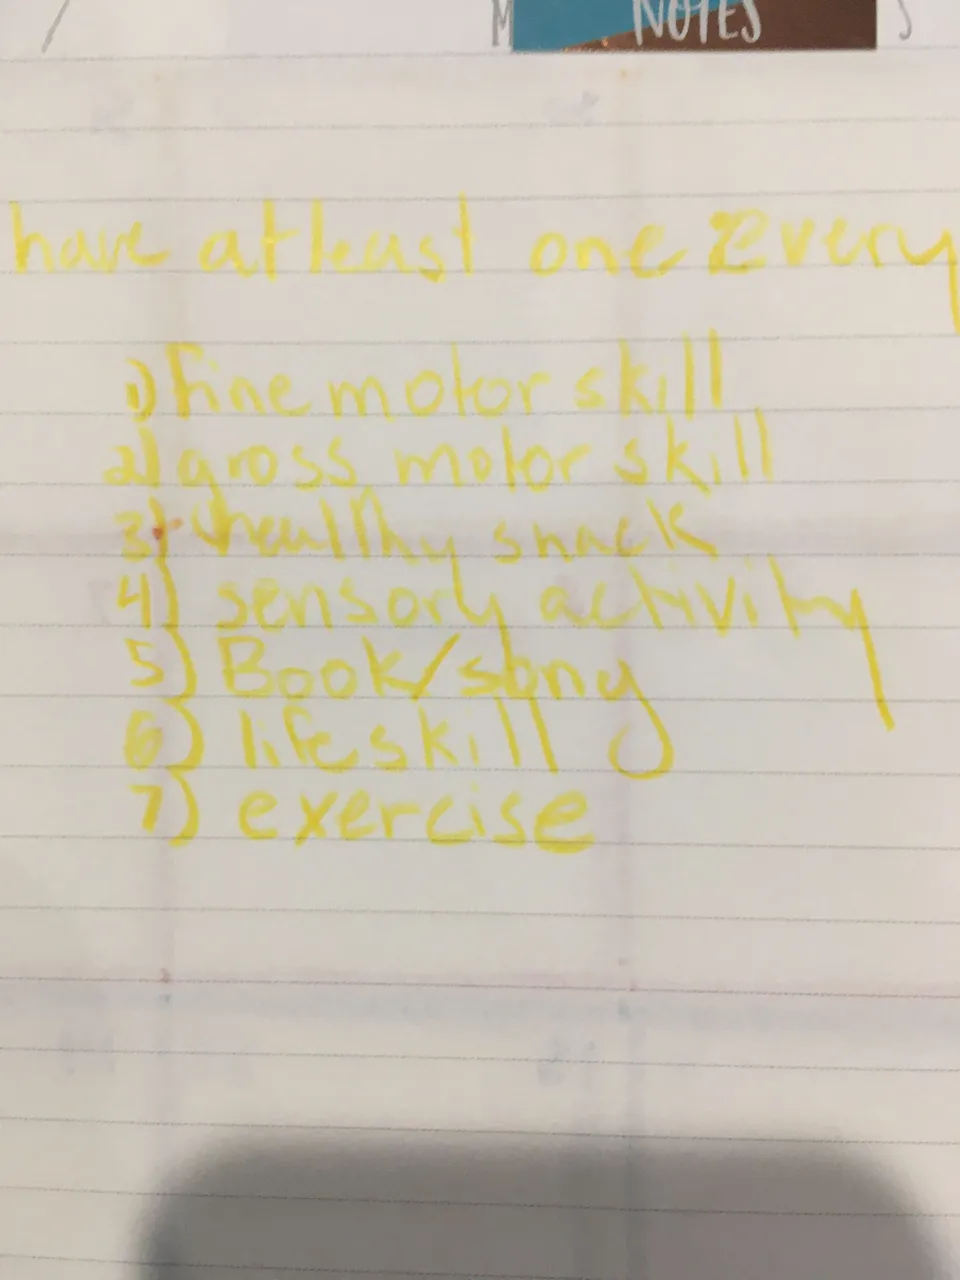 NOTES
have atleast one every
1) fine motor skill
2) gross motor skill
3) healthy snack
4) sensory activity
5) Book/song
6) life skill
7) exercise